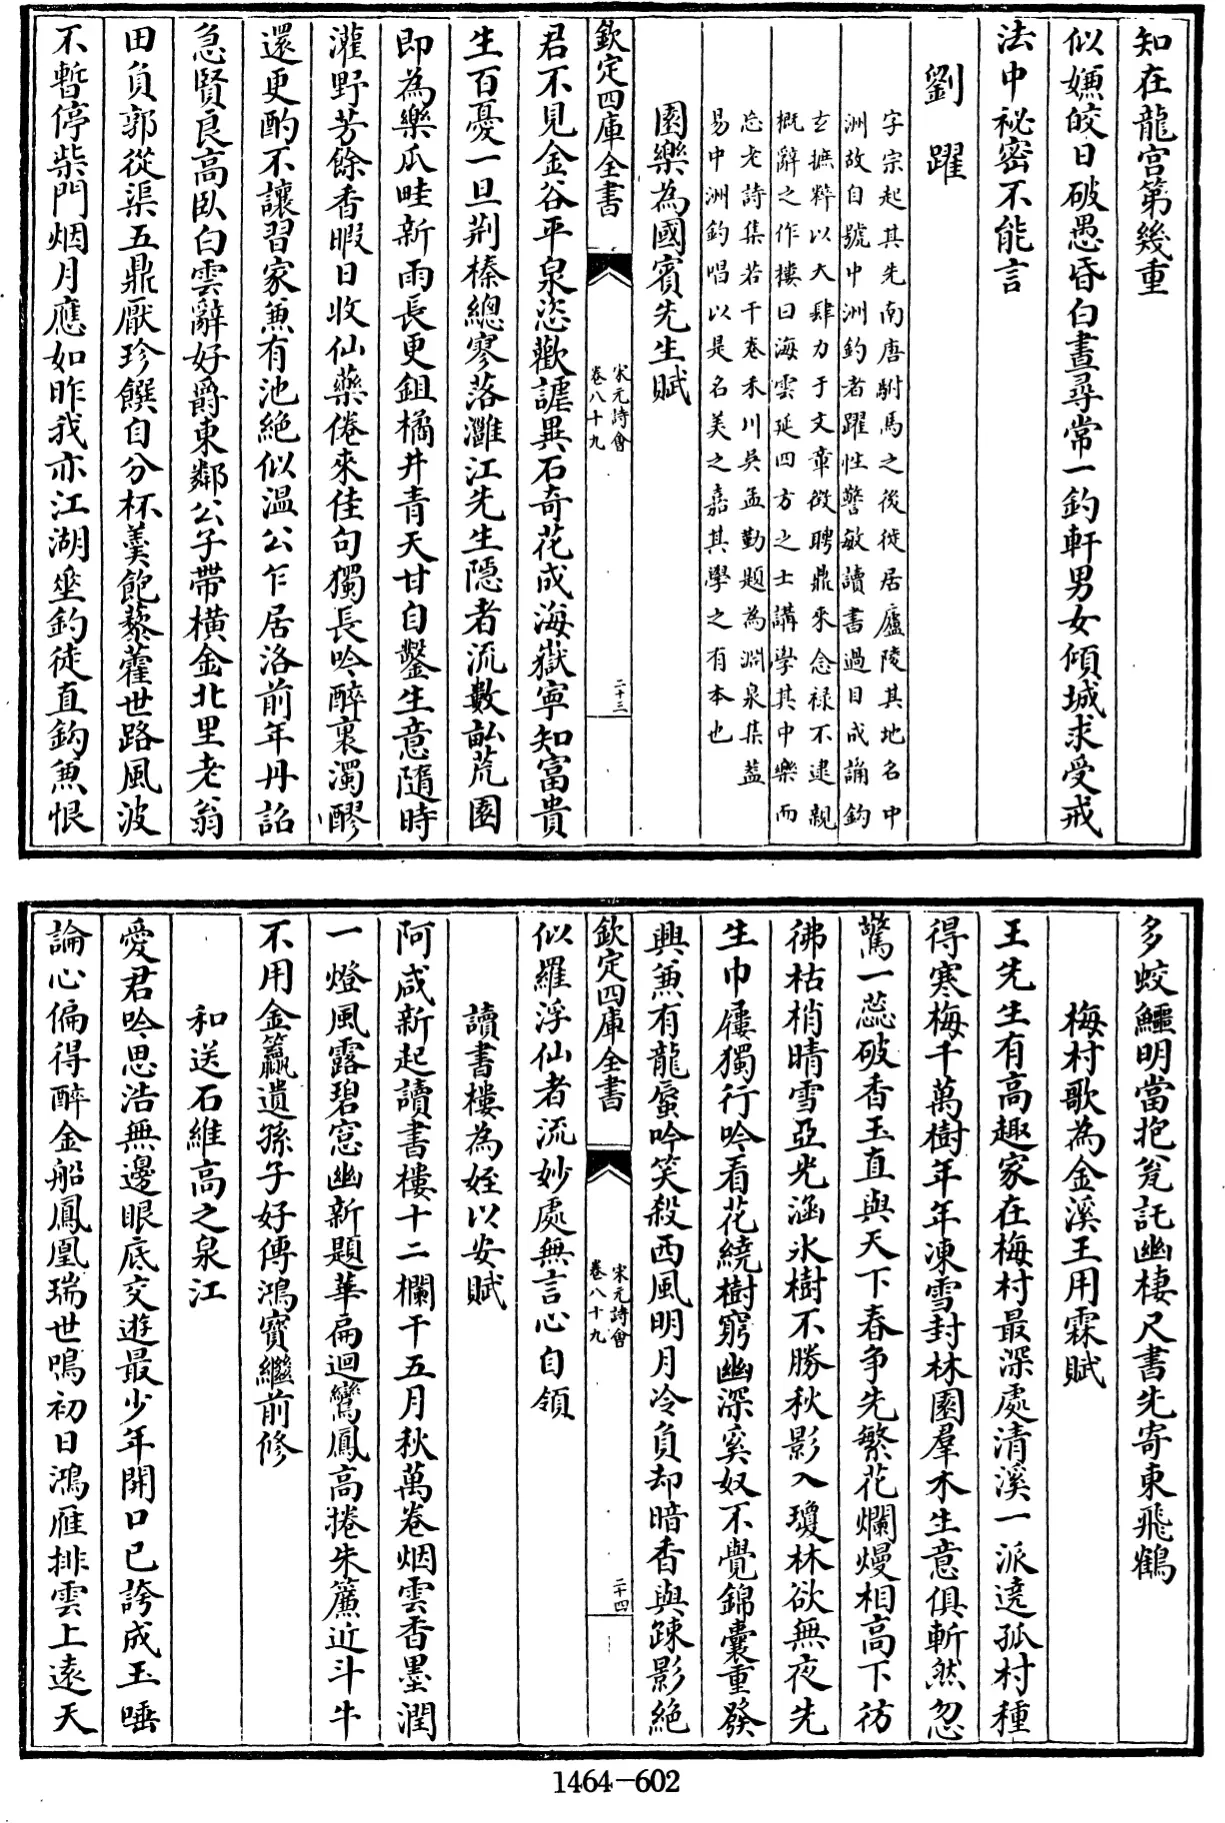 知在龍宮第幾重
似嫌皎日破愚昏白晝尋常一釣軒男女傾城求受戒
法中祕密不能言
劉躍
字宗起其先南唐駙馬之後徙居廬陵其地名中
洲故自號中洲釣者躍性警敏讀書過目成誦鈎
玄摭粹以大肆力于文章徵聘鼎來念祿不逮親
概辭之作樓曰海雲延四方之士講學其中樂而
忘老詩集若干卷禾川吳孟勤題為淵泉集蓋
易中洲釣唱以是名美之嘉其學之有本也
園樂為國賓先生賦
欽定四庫全書
宋元詩會
卷八十九
二十三
君不見金谷平泉恣歡謔異石奇花成海嶽寧知富貴
生百憂一旦荆榛總寥落灉江先生隱者流數畝荒園
即為樂瓜畦新雨長更鉏橘井青天甘自鑿生意隨時
灌野芳餘香暇日收仙藥倦來佳句獨長吟醉裏濁醪
還更酌不讓習家魚有池絕似溫公乍居洛前年丹詔
急賢良高臥白雲辭好爵東鄰公子帶橫金北里老翁
田負郭從渠五鼎厭珍饌自分杯羹飽藜藿世路風波
不暫停柴門烟月應如昨我亦江湖坐釣徒直鈎魚恨
多蛟鱷明當抱瓮託幽棲尺書先寄東飛鶴
梅村歌為金溪王用霖賦
王先生有高趣家在梅村最深處清溪一派遶孤村種
得寒梅千萬樹年年凍雪封林園羣木生意俱斬然忽
驚一蕊破香玉直與天下春争先繁花爛熳相高下彷
彿枯梢晴雪亞光涵氷樹不勝秋影入瓊林欲無夜先
生巾屨獨行吟看花繞樹窮幽深奚奴不覺錦囊重發
興兼有龍蜃吟笑殺西風明月冷負却暗香與踈影絕
欽定四庫全書
宋元詩會
卷八十九
二十四
似羅浮仙者流妙處無言心自領
讀書樓為姪以安賦
阿咸新起讀書樓十二欄干五月秋萬卷烟雲香墨潤
一燈風露碧窓幽新題華扁迴鸞鳳高捲朱簾近斗牛
不用金籯遺孫子好傳鴻寳繼前修
和送石維高之泉江
愛君吟思浩無邊眼底交遊最少年開口已誇成玉唾
論心偏得醉金船鳳凰瑞世鳴初日鴻雁排雲上遠天
1464-602